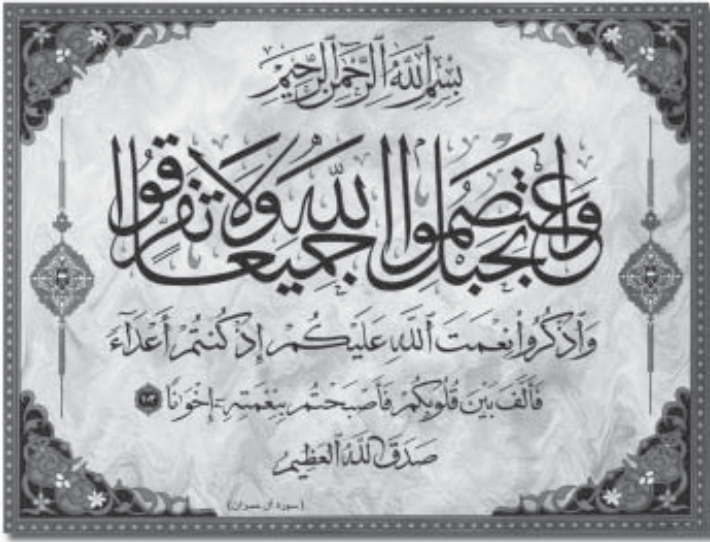 بِسْمِ ٱللَّهِ ٱلرَّحْمَٰنِ ٱلرَّحِيمِ
وَاعْتَصِمُوا بِحَبْلِ اللَّهِ جَمِيعًا وَلَا تَفَرَّقُوا
وَٱذْكُرُوا۟ نِعْمَتَ ٱللَّهِ عَلَيْكُمْ إِذْ كُنتُمْ أَعْدَآءً
فَأَلَّفَ بَيْنَ قُلُوبِكُمْ فَأَصْبَحْتُم بِنِعْمَتِهِۦٓ إِخْوَٰنًا ١٠٣
صَدَقَ اللَّهُ الْعَظِيمُ
(سورة آل عمران)